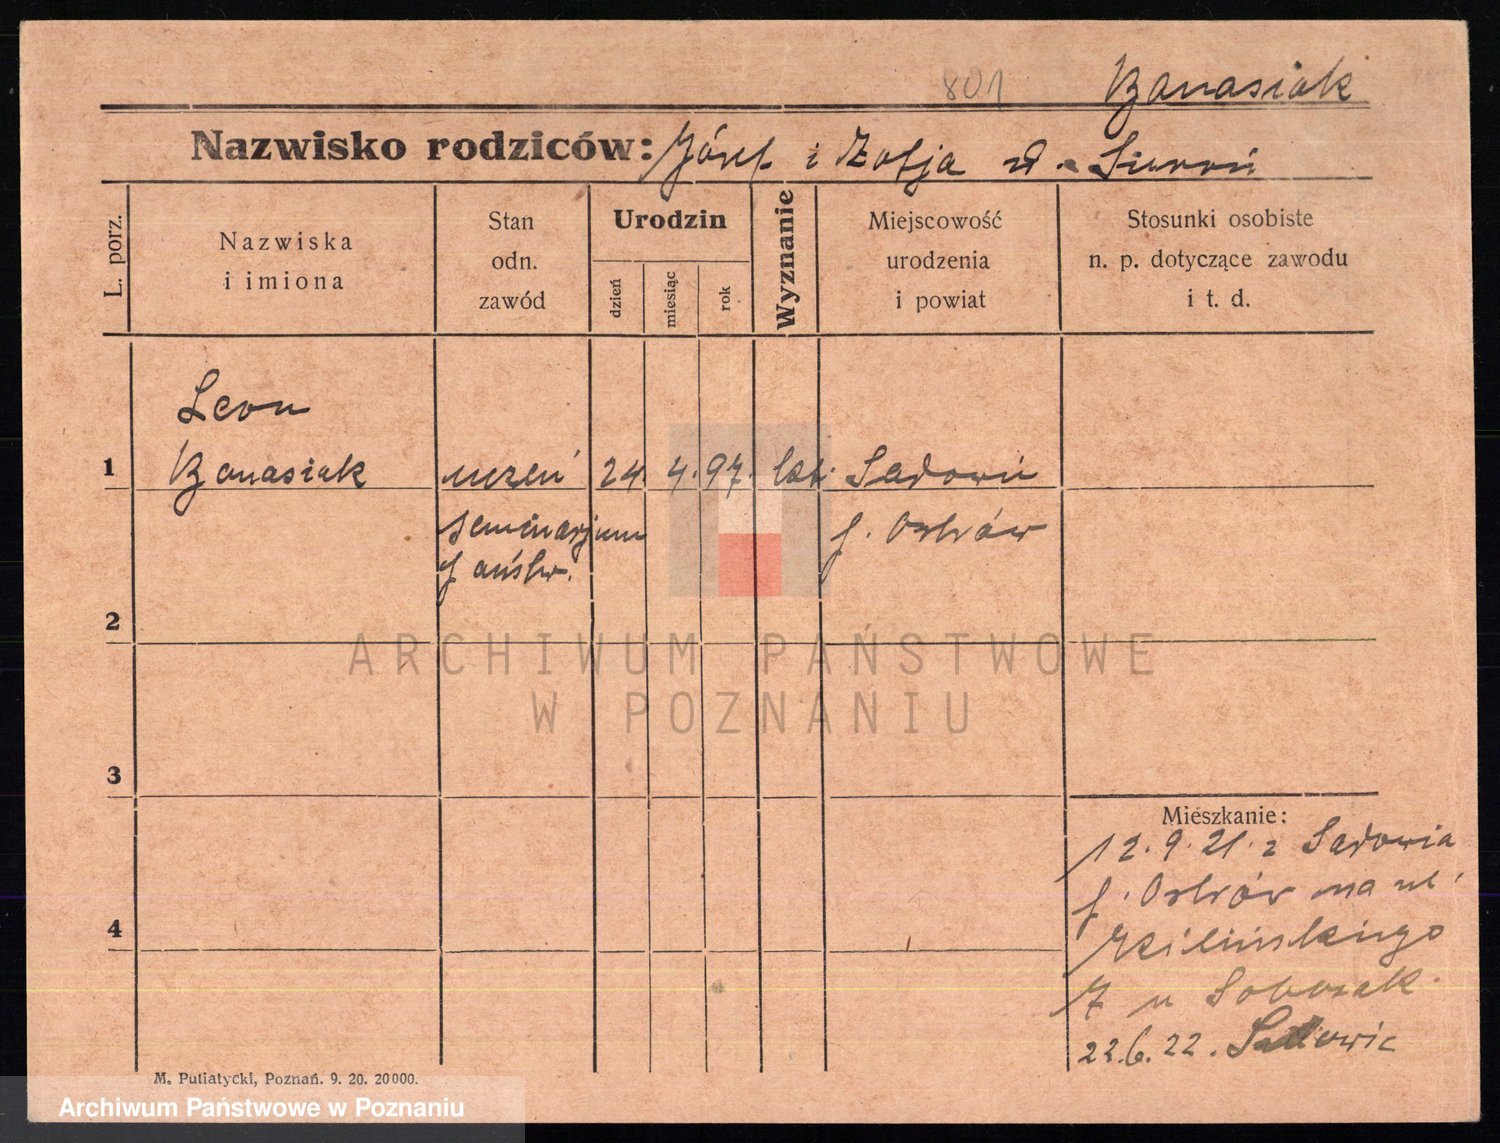 801 Banasiak
Nazwisko rodziców: Józef i Zofja
L. porz.
Nazwiska
i imiona
Stan
odn.
zawód
Urodzin
dzień
miesiąc
rok
Wyznanie
Miejscowość
urodzenia
i powiat
Stosunki osobiste
n. p. dotyczące zawodu
i t. d.
Leon
1 Banasiak uczeń 24. 4. 97. kat. Sadowie
seminarjum p. Ostrów
państw.
2
ARCHIWUM PAŃSTWOWE
W POZNANIU
3
Mieszkanie:
12.9.21. z Sadowia
p. Ostrów na ul.
4 Kilińskiego
7 u Sobczak.
22.6.22. Sadowie
M. Putiatycki, Poznań. 9. 20. 20000.
Archiwum Państwowe w Poznaniu